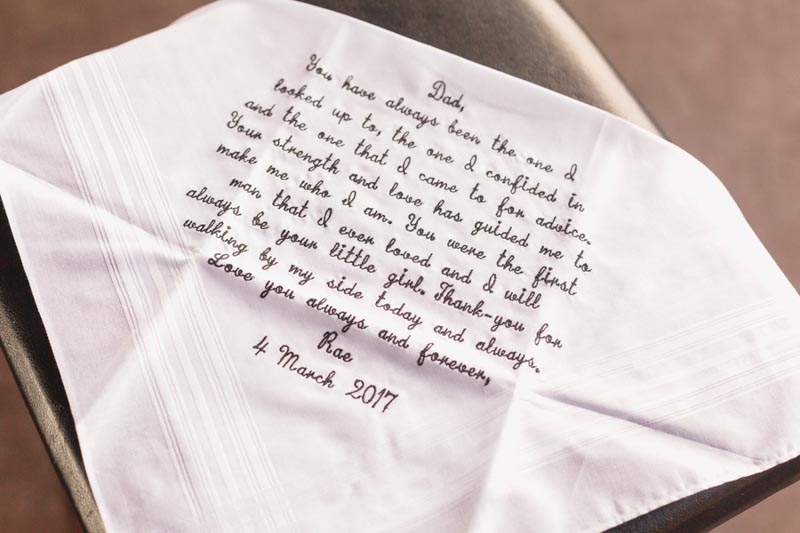 Dad,
You have always been the one I
looked up to, the one I confided in
and the one that I came to for advice.
Your strength and love has guided me to
make me who I am. You were the first
man that I ever loved and I will
always be your little girl. Thank-you for
walking by my side today and always.
Love you always and forever,
Rae
4 March 2017